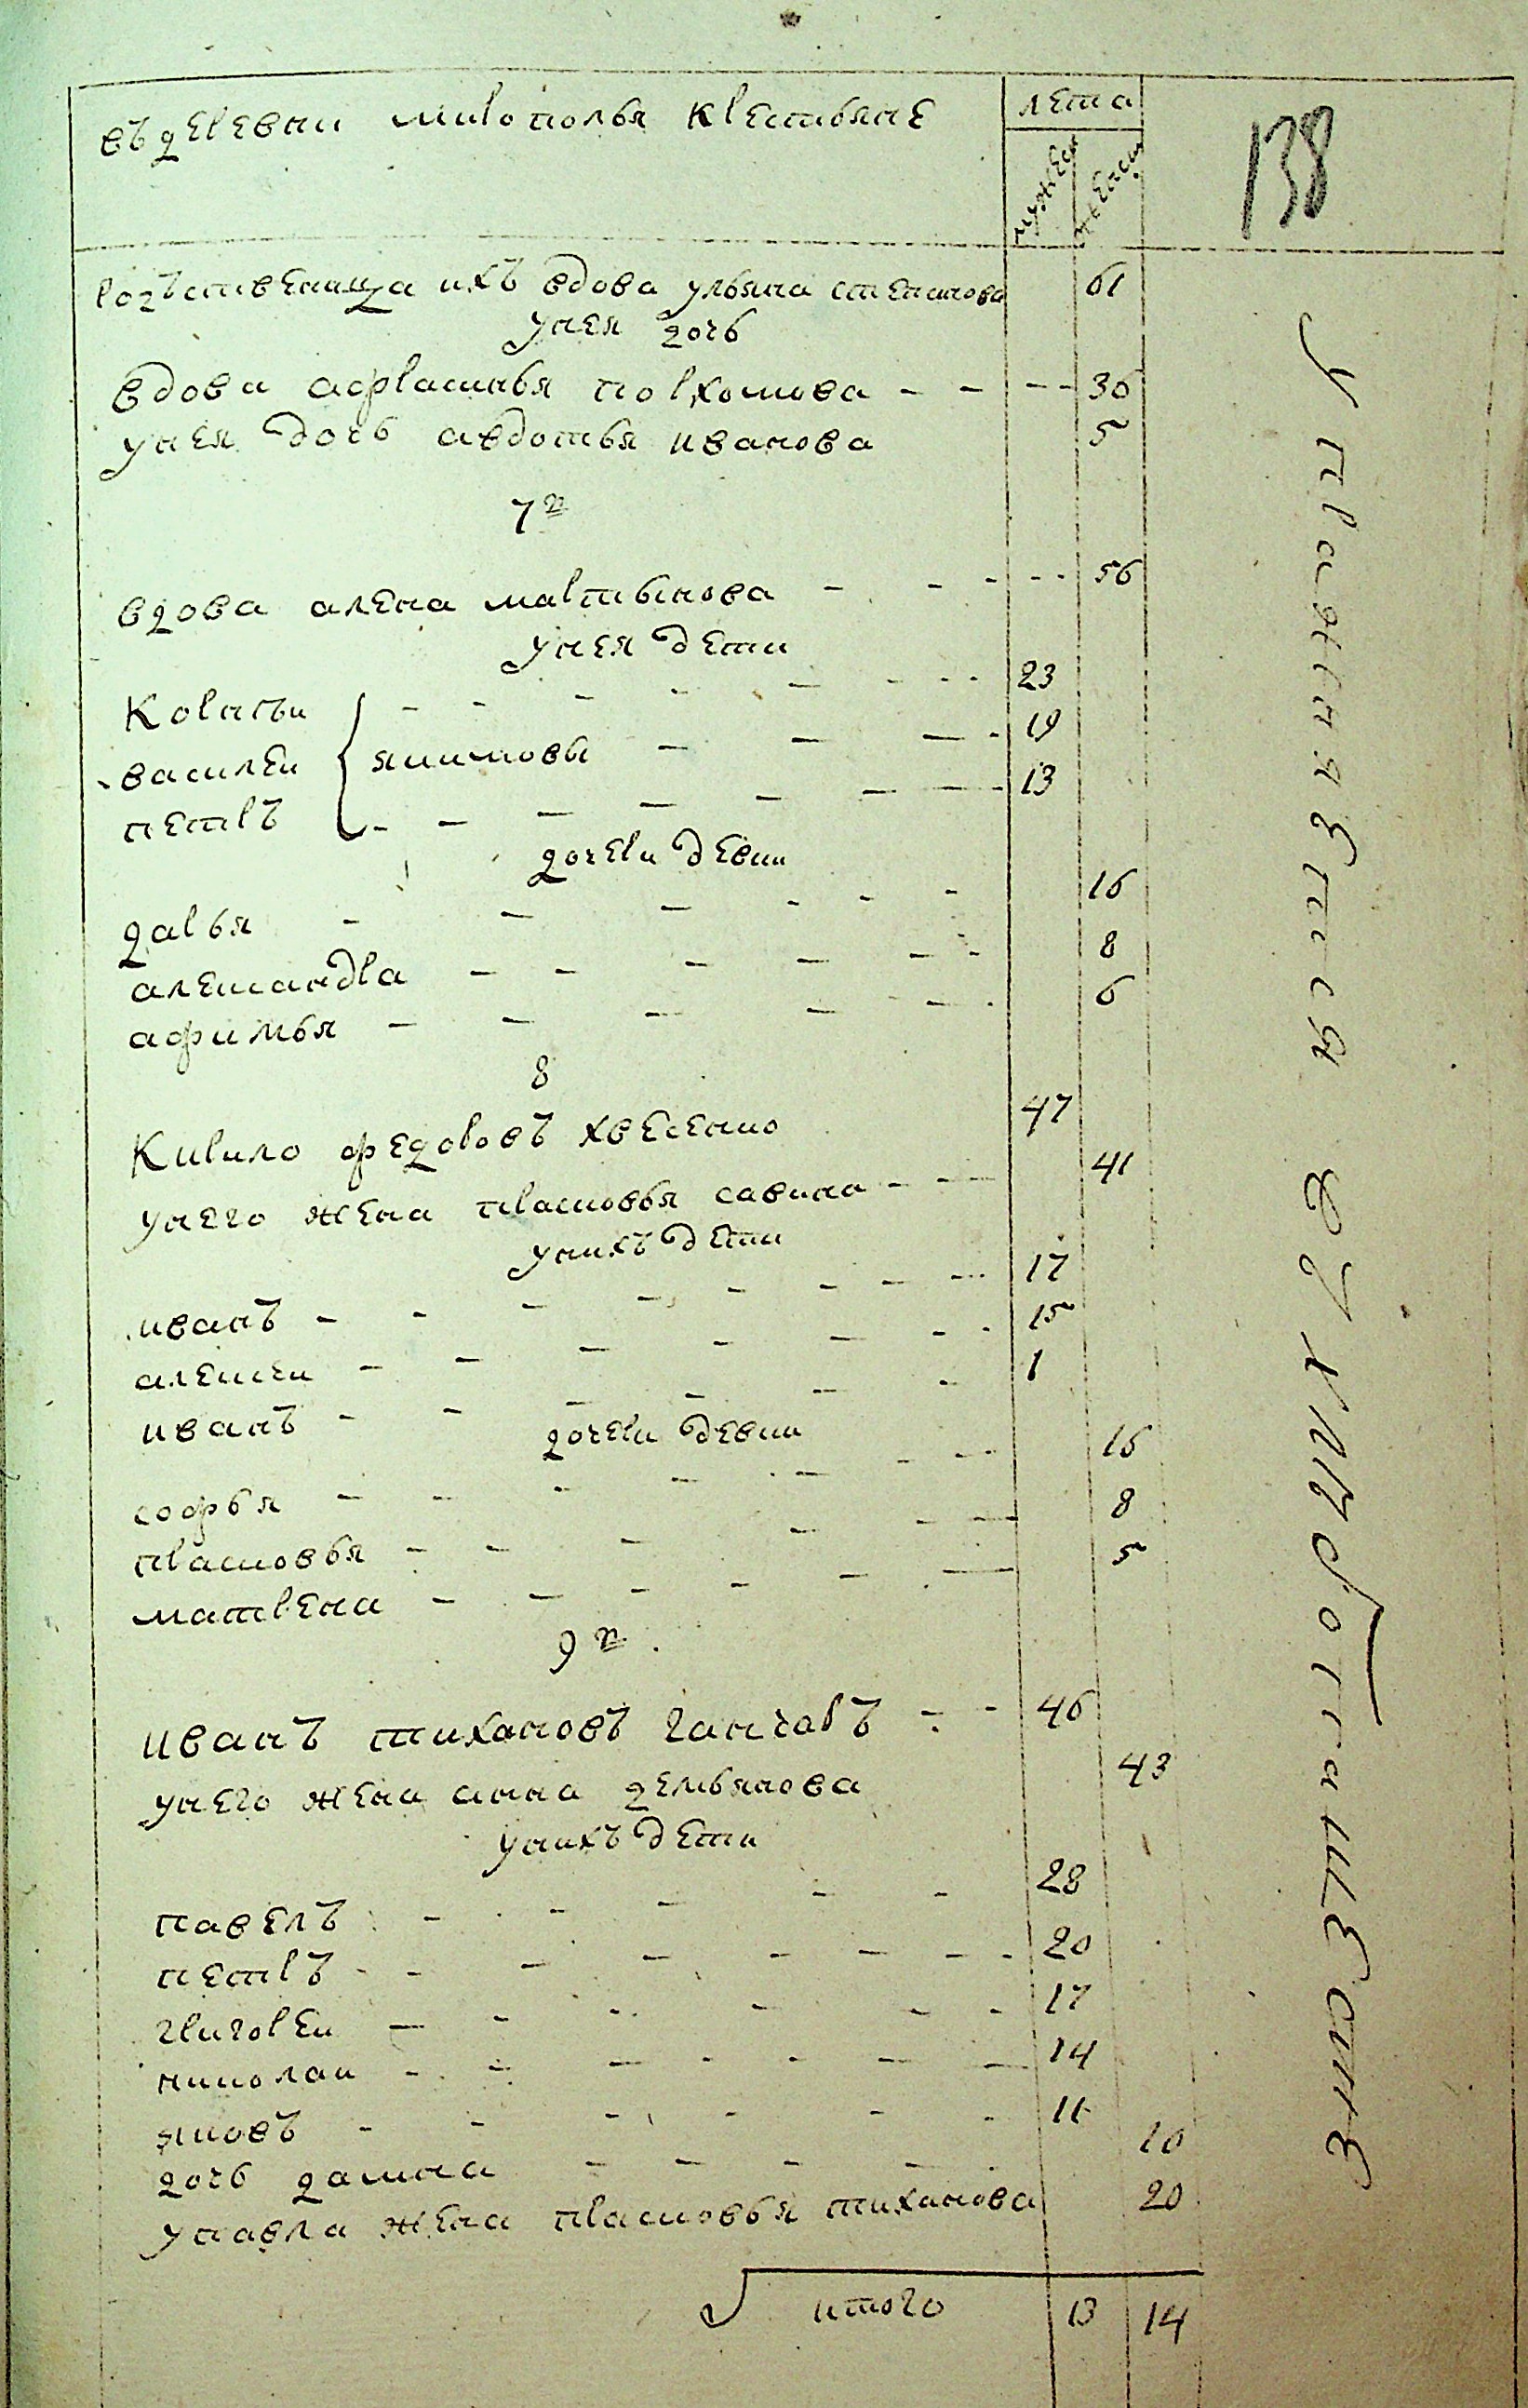 въ деревни миrополья крестьяне
лета
мужеск
женск
138
родственница ихъ вдова ульяна степанова 61
унея дочь
вдова афрасинья порхомова 36
унея дочь авдотья иванова 5
7й
вдова алена мартынова 56
унея дети
корнѣи 23
василеи якимовы 19
петръ 13
дочери девки
дарья 16
александра 8
афимья 6
8
кирило федоровъ 47
унего жена прасковья савина 41
унихъ дети
иванъ 17
алексеи 15
иванъ 1
дочери девки
софья 15
прасковья 8
матрена 5
9й
иванъ тихановъ ганчаръ 46
унего жена анна демьянова 43
унихъ дети
павелъ 28
петръ 20
григореи 17
николаи 14
яковъ 11
дочь домна 10
упавла жена прасковья тиханова 20
итого 13 14